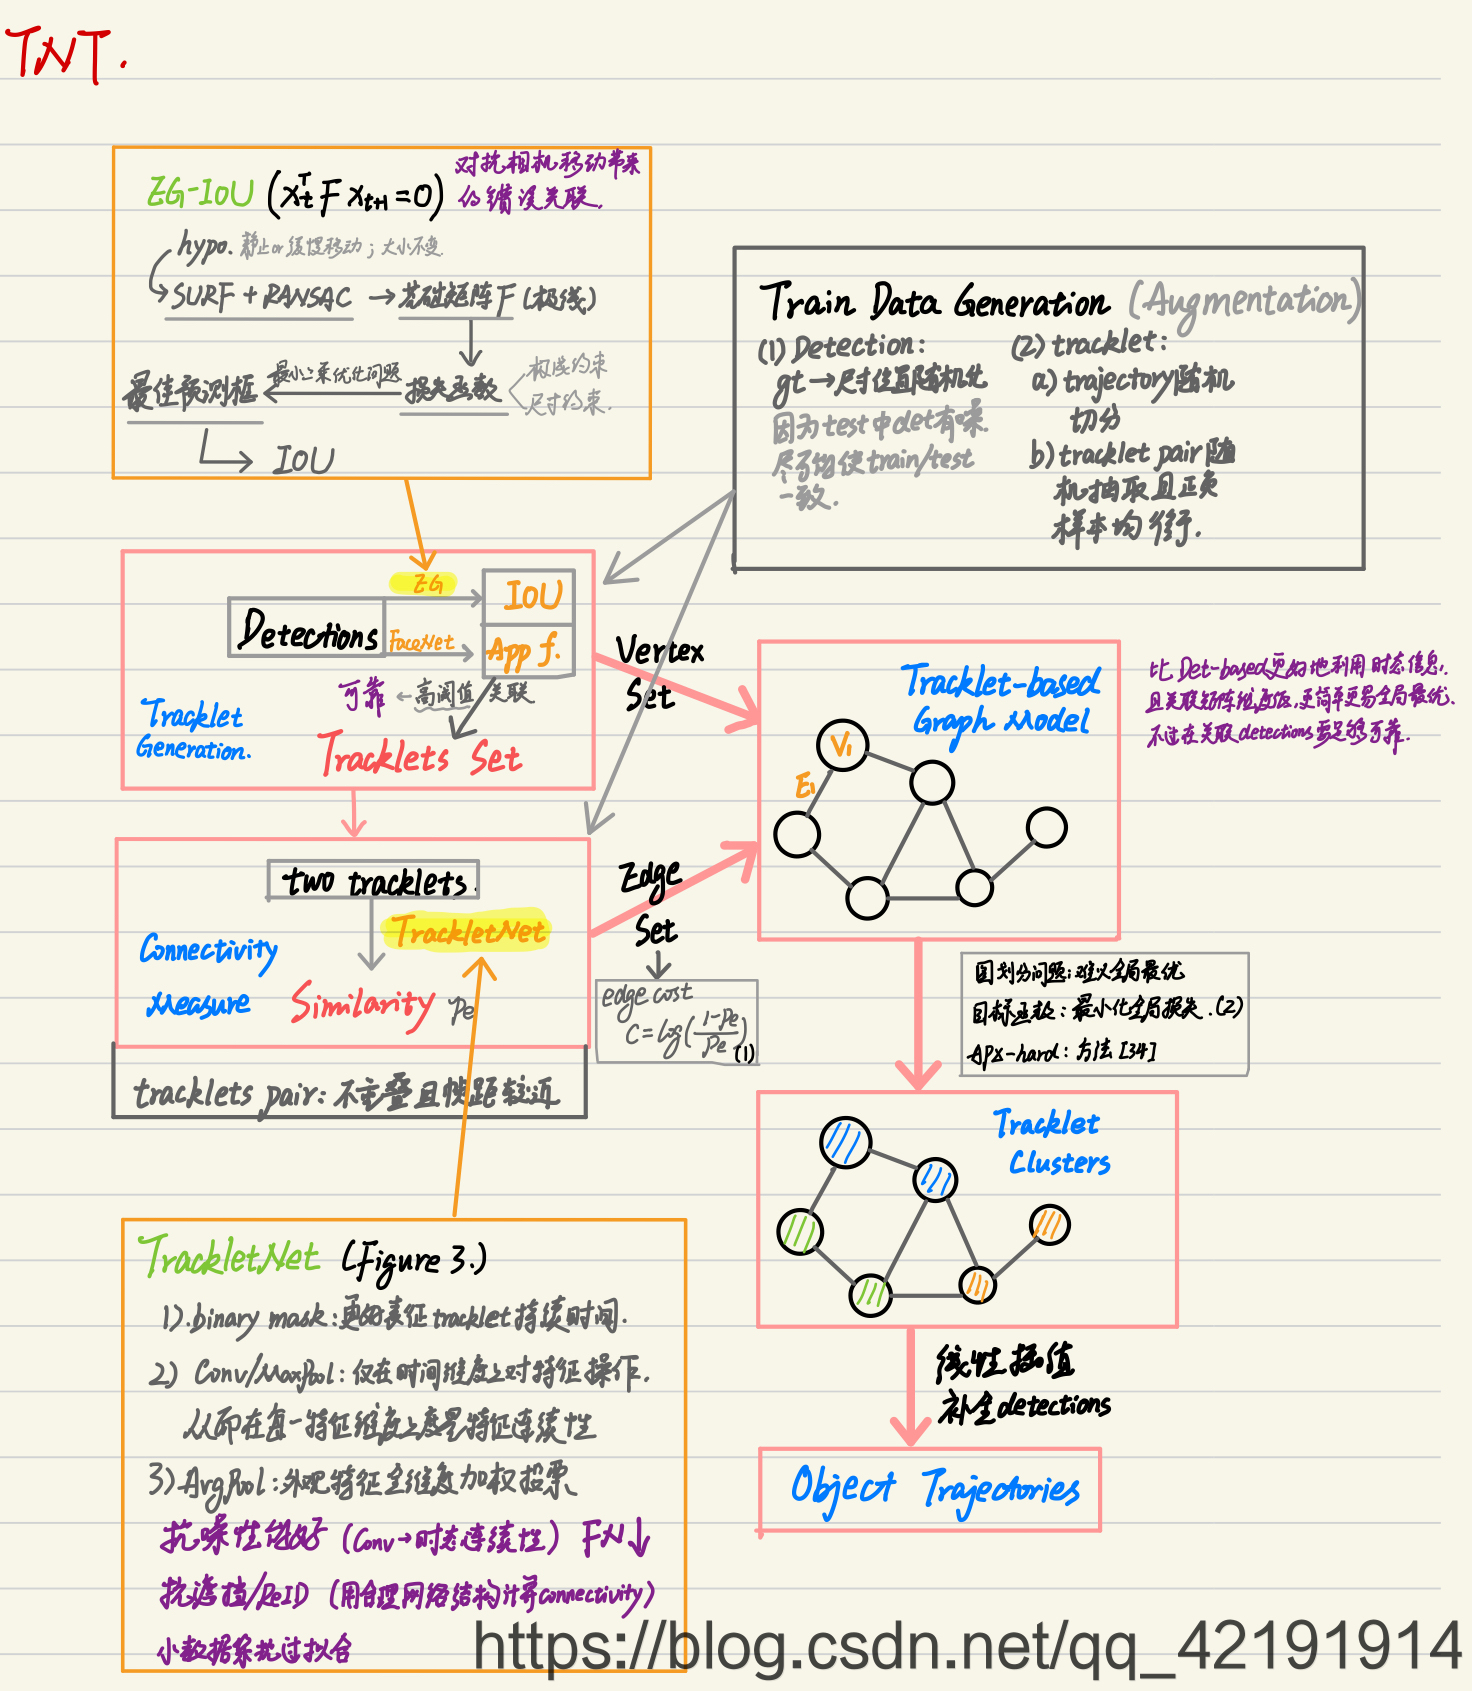 TNT.
EG-IoU (x_t^T F x_{t+1} = 0)
对抗相机移动带来
的错误关联.
hypo. 静止or缓慢移动；大小不变.
SURF + RANSAC → 基础矩阵F (极线)
最佳预测框 ← 最小二乘优化问题 损失函数
极线约束
尺寸约束.
IOU
Train Data Generation (Augmentation)
(1) Detection:
gt → 尺寸位置随机化
因为test中det有噪.
尽可能使train/test
一致.
(2) tracklet:
a) trajectory随机
切分
b) tracklet pair随
机抽取且正负
样本均衡.
EG
IOU
Detections
FaceNet
App f.
可靠 ← 高阈值 关联
Tracklet
Generation.
Tracklets Set
Vertex
Set
Tracklet-based
Graph Model
V1
E1
比Det-based更好地利用时态信息,
且关联矩阵维度低,更简单更易全局最优.
不过在关联detections要足够可靠.
two tracklets.
TrackletNet
Connectivity
Measure
Similarity Pe
Edge
Set
edge cost
C = log(\frac{1-Pe}{Pe}) (1)
tracklets pair: 不重叠且帧距较近
图划分问题: 难以全局最优
目标函数: 最小化全局损失.(2)
APX-hard: 方法[34]
Tracklet
Clusters
TrackletNet (Figure 3.)
1). binary mask: 更好表征tracklet持续时间.
2) Conv/MaxPool: 仅在时间维度上对特征操作.
从而在每一特征维度上度量特征连续性
3) AvgPool: 外观特征全维度加权投票
抗噪性能好 (Conv→时态连续性) FN↓
抗遮挡/ReID (用合理网络结构计算connectivity)
小数据集抗过拟合
线性插值
补全detections
Object Trajectories
https://blog.csdn.net/qq_42191914